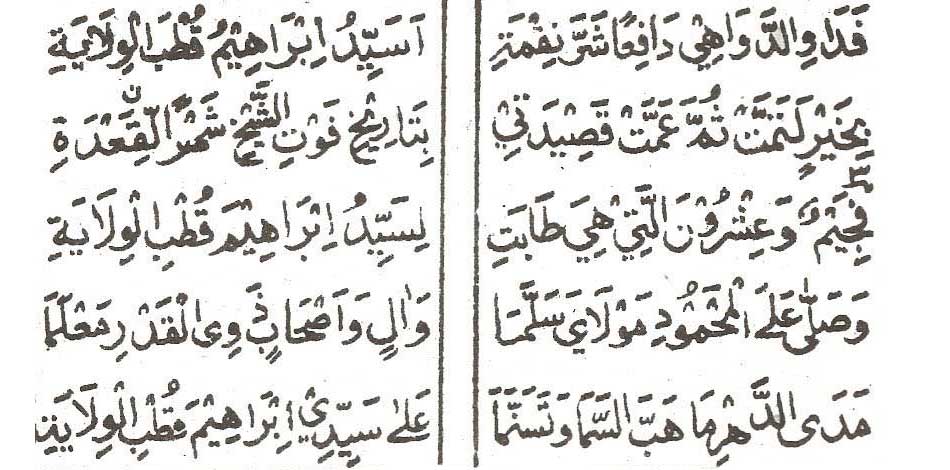 فَدَاوِ الدَّوَاهِيْ دَافِعًا شَرَّ نِقْمَةٍ اَسَيِّدُ اِبْرَاهِيْمُ قُطْبَ الْوِلَايَةِ
بِخَيْرٍ لَنَمَّتْ ثُمَّ عَمَّتْ قَصِيْدَتِيْ بِتَارِيْخِ فَوْتِ الشَّيْخِ شَهْرِ الْقَعْدَةِ
فَجِيْمٌ ٣ وَعِشْرُوْنَ الَّتِيْ هِيَ طَابَتِ لِسَيِّدُ اِبْرَاهِيْمَ قُطْبِ الْوِلَايَةِ
وَصَلِّ عَلَى الْمَحْمُوْدِ مَوْلَايَ سَلِّمَا وَاٰلٍ وَاَصْحَابٍ ذَوِى الْقَدْرِ مَعْلَمَا
مَدَى الدَّهْرِ مَا هَبَّ السَّمَا وَتَسَنَّمَا عَلٰى سَيِّدِيْ اِبْرَاهِيْمَ قُطْبِ الْوِلَايَةِ